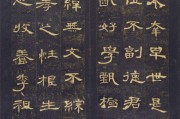 不幸早世是
位不副德君
齓好學甄極
緯無文不綜
孝之性根生
心收養季祖